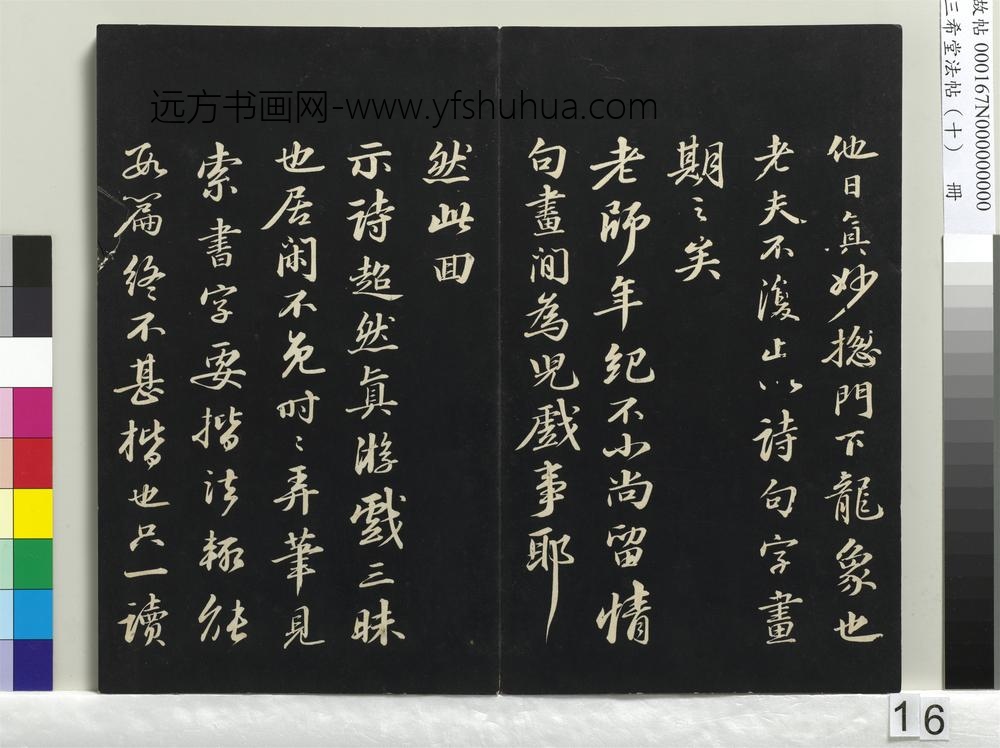 他日真妙捴門下龍象也
老夫不復止以詩句字畫
期之矣
老師年紀不小尚留情
句畫間為兒戲事耶
然此回
示詩超然真游戲三昧
也居閑不免時〻弄筆見
索書字要楷法輙往
數篇終不甚楷也只一讀
远方书画网-www.yfshuhua.com
故帖 000167N000000000
三希堂法帖（十） 冊
16